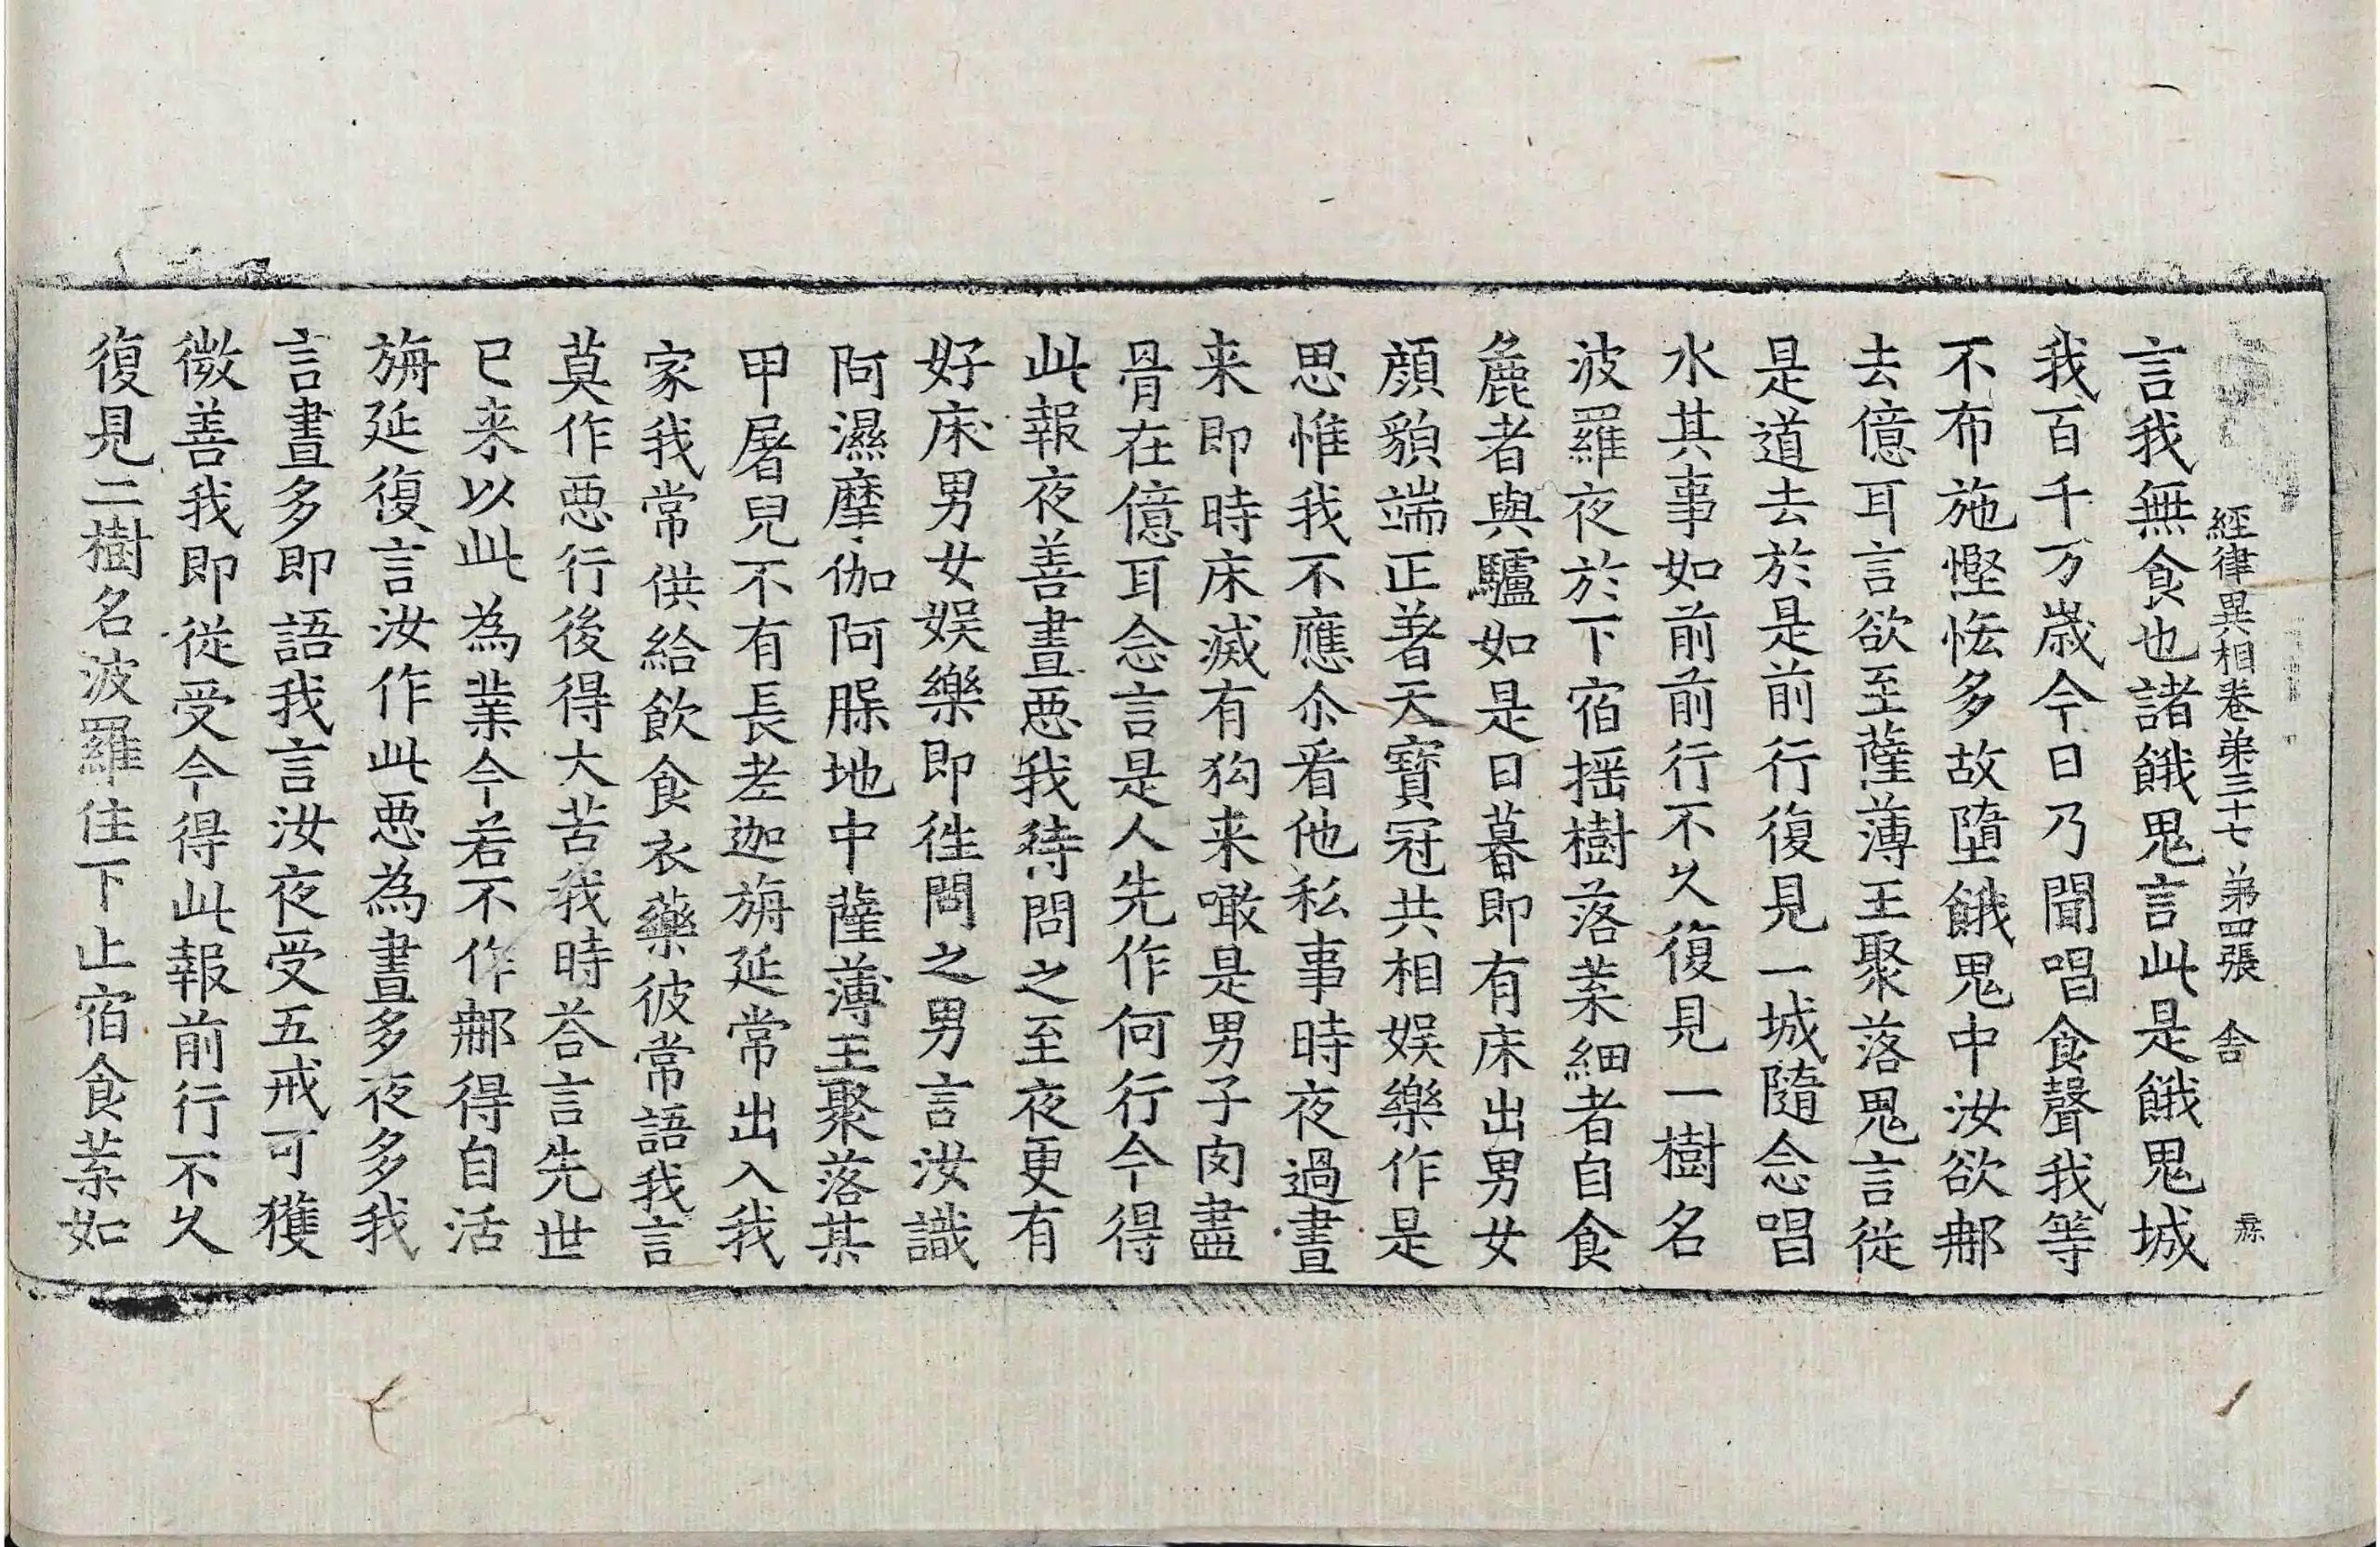 經律異相卷第三十七 第四張 舎
言我無食也諸餓鬼言此是餓鬼城
我百千万歳今日乃聞唱食聲我等
不布施慳悋多故墮餓鬼中汝欲那
去億耳言欲至薩薄王聚落鬼言從
是道去於是前行復見一城隨念唱
水其事如前前行不久復見一樹名
波羅夜於下宿揺樹落葉細者自食
麁者與驢如是日暮即有床出男女
顔貌端正著天寶冠共相娯樂作是
思惟我不應尒看他私事時夜過晝
来即時床滅有狗来噉是男子肉盡
骨在億耳念言是人先作何行今得
此報夜善晝惡我待問之至夜更有
好床男女娯樂即徃問之男言汝識
阿濕摩伽阿䐧地中薩薄王聚落某
甲屠兒不有長老迦旃延常出入我
家我常供給飲食衣藥彼常語我言
莫作惡行後得大苦我時荅言先世
已来以此為業今若不作那得自活
旃延復言汝作此惡為晝多夜多我
言晝多即語我言汝夜受五戒可獲
微善我即從受今得此報前行不久
復見二樹名波羅住下止宿食葉如